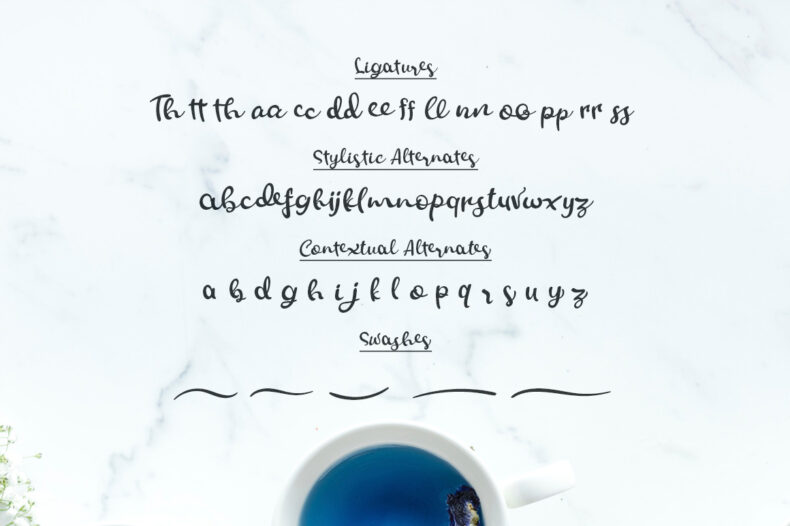 Ligatures
Th tt th aa cc dd ee ff ll nn oo pp rr ss
Stylistic Alternates
abcdefghijklmnopqrstuvwxyz
Contextual Alternates
a b d g h i j k l o p q r s u y z
Swashes